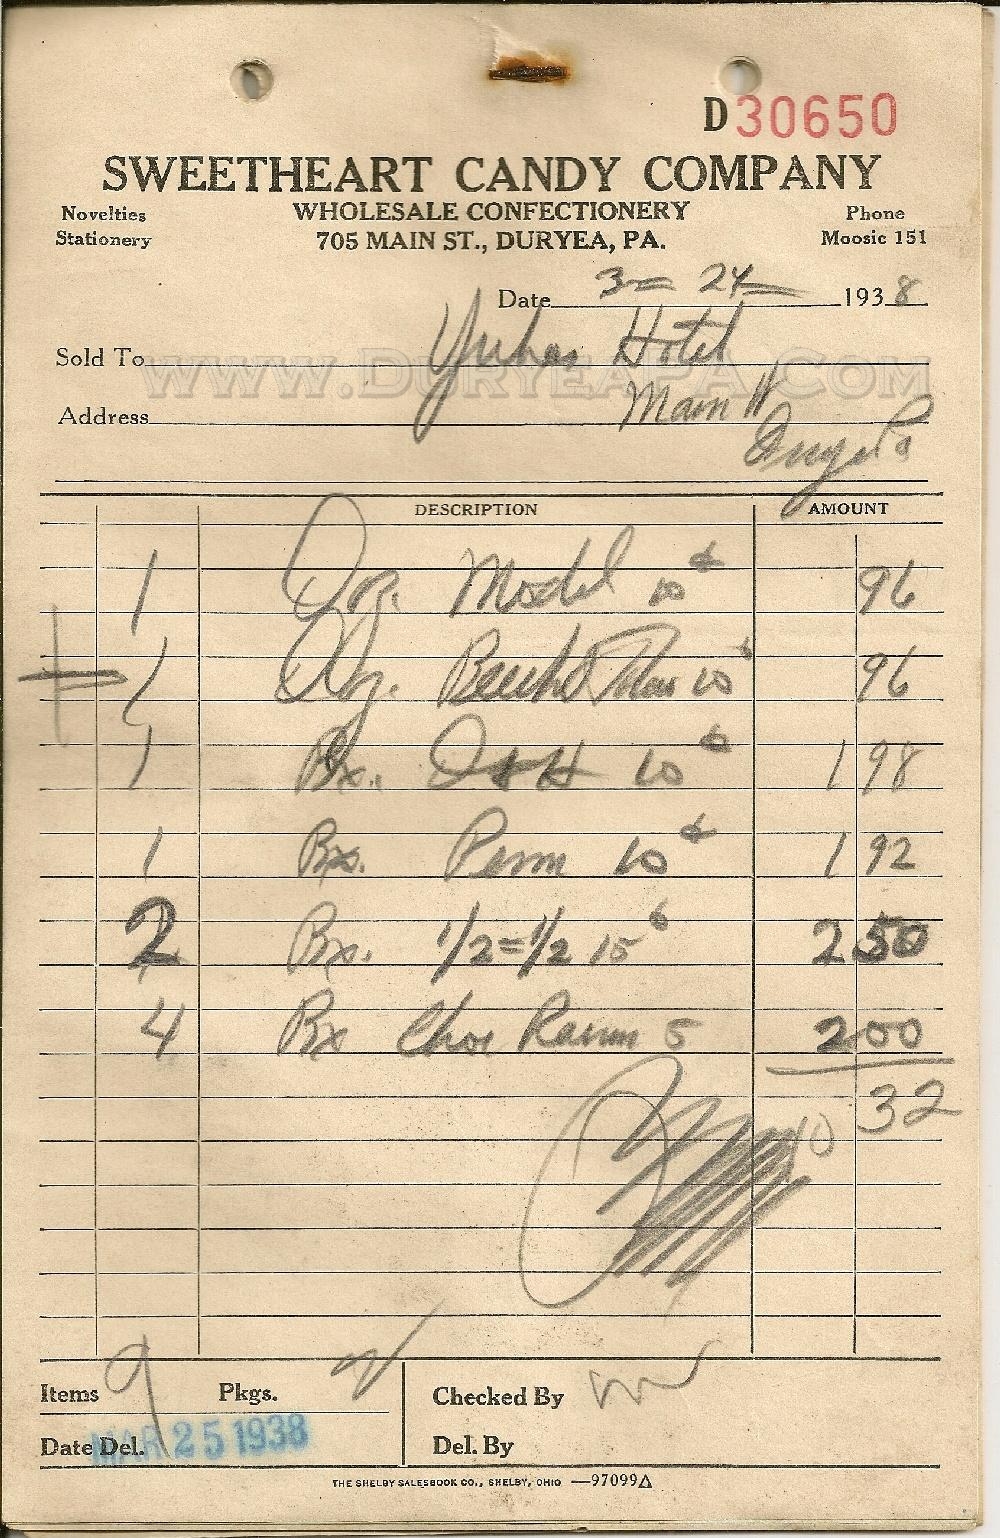 D30650
SWEETHEART CANDY COMPANY
Novelties WHOLESALE CONFECTIONERY Phone
Stationery 705 MAIN ST., DURYEA, PA. Moosic 151
Date 3 - 24 - 1938
Sold To Yuhas Hotel
www.DuryeaPA.com
Address Main St
Duryea Pa
DESCRIPTION AMOUNT
1 Doz. Model 10¢ 96
1 Doz. 10¢ 96
1 Bx. 10¢ 1 98
1 Bx. Penn 10¢ 1 92
2 Bx. 1/2=1/2 15¢ 2 50
4 Bx Choc Raisin 5 2 00
10 32
Items 9 Pkgs.
Checked By
Date Del. MAR 25 1938
Del. By
THE SHELBY SALESBOOK CO., SHELBY, OHIO —97099